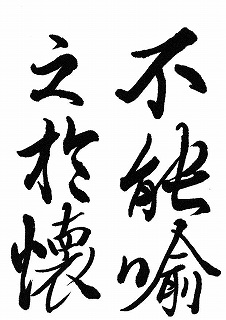 不能喻
之於懷